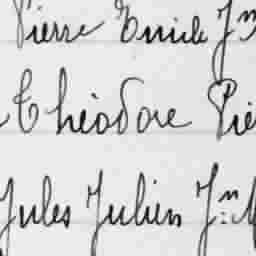 Pierre Emile Jn
Théodore Pie
Jules Julien Jn: M